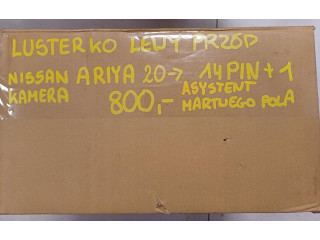 LUSTERKO LEWY PRZÓD
NISSAN ARIYA 20-> 14 PIN + 1
KAMERA 800,- ASYSTENT
MARTWEGO POLA